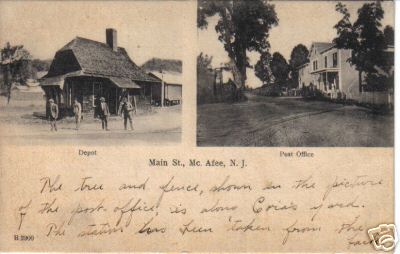 Depot
Post Office
Main St., Mc. Afee, N. J.
The tree and fence, shown in the picture
of the post office, is along Cora's yard.
The station has been taken from the
B 3900